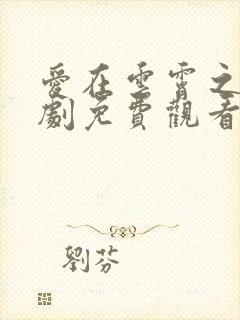 愛在雲霄之
劇免費觀看
劉芬